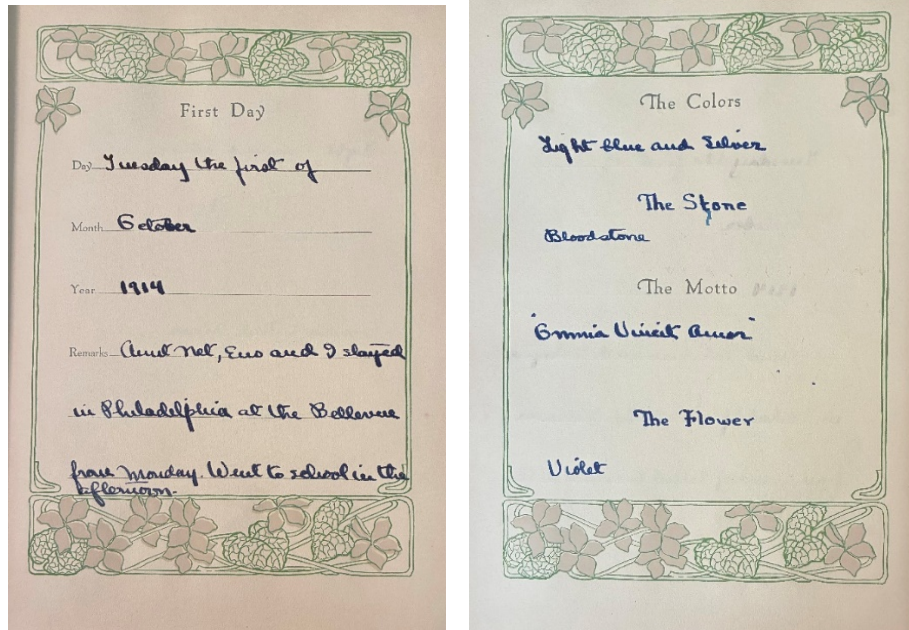 First Day
Day Tuesday the first of
Month October
Year 1914
Remarks Aunt Net, and I stayed
in Philadelphia at the Bellevue
from Monday. Went to school in the
afternoon.
The Colors
Light blue and Silver
The Stone
Bloodstone
The Motto
"Omnia Vincit Amor"
The Flower
Violet